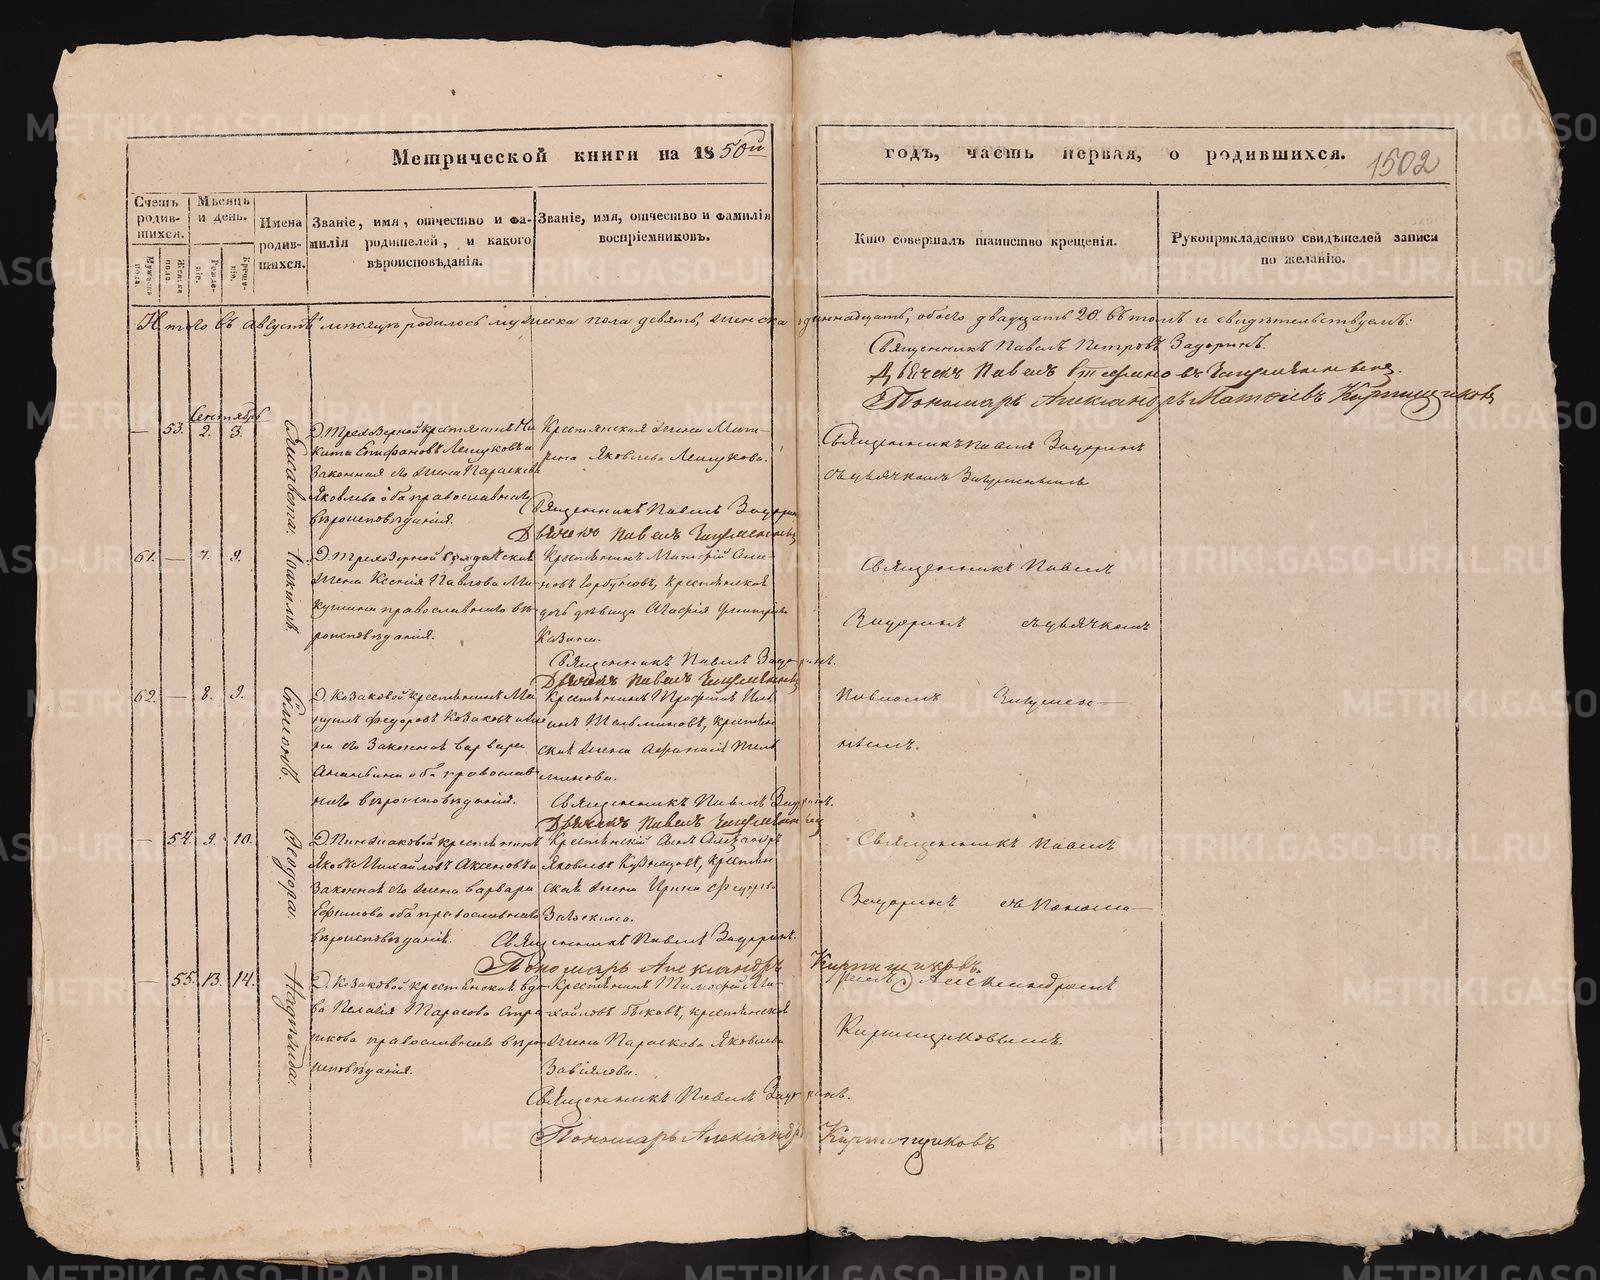 Метрической книги на 1850й
годъ, часть первая, о родившихся.
1502
Счетъ родившихся.
Мужеска пола
Женска пола.
Мѣсяцъ и день.
Рожденіе.
Крещеніе.
Имена родившихся.
Званіе, имя, отчество и фамилія родителей, и какого вѣроисповѣданія.
Званіе, имя, отчество и фамилія воспріемниковъ.
Кто совершалъ таинство крещенія.
Рукоприкладство свидѣтелей записи по желанію.
Итого въ Августѣ мѣсяцѣ родилось мужеска пола девять, женска одиннадцать, обоего двадцать 20. въ томъ и свидѣтельствуемъ:
Священникъ Павелъ Петровъ Задоринъ.
Дьячекъ Павелъ
Пономарь Александръ Матѳіевъ Кирпищиковъ
Сентябрь
— 53. 2. 3.
Елисавета.
Д. Трехозерной крестьянинъ Ни-
кита Епифановъ и
законная его жена Параскева
Яковлева оба православнаго
вѣроисповѣданія.
Крестьянская жена Мат-
рена Яковлева
Священникъ Павелъ Задоринъ
Дьячекъ Павелъ
Священникъ Павелъ Задоринъ
съ дьячкомъ
61. — 7. 9.
Іоакимъ.
Д. Трехозерной солдатская
жена Ксенія Павлова
православнаго вѣ-
роисповѣданія.
Крестьянинъ
Горбуновъ, крестьянская
дочь дѣвица Агафія Дмитріева
Казина.
Священникъ Павелъ Задоринъ.
Дьячекъ Павелъ
Священникъ Павелъ
Задоринъ съ дьячкомъ
62. — 8. 9.
Симеонъ.
Д. Козаковой крестьянинъ
Федоровъ Козаковъ и же-
на его законная Варвара
Ананьина оба православ-
наго вѣроисповѣданія.
Крестьянинъ Трофимъ
крестьян-
ская жена
Священникъ Павелъ Задоринъ.
Дьячекъ Павелъ
Павломъ
— 54. 9. 10.
Ѳеодора.
крестьянинъ
Яковъ Михайловъ Аксеновъ и
законная его жена Варвара
Ефимова оба православнаго
вѣроисповѣданія.
Крестьянскій сынъ Александръ
Яковлевъ Кузнецовъ, крестьян-
ская жена Ирина Федорова
Священникъ Павелъ Задоринъ.
Пономарь Александръ Кирпищиковъ.
Священникъ Павелъ
Задоринъ съ Понома-
ремъ Александромъ
Кирпищиковымъ.
— 55. 13. 14.
Надежда.
Д. Козаковой крестьянская вдо-
ва Пелагія Тарасова
православнаго вѣро-
исповѣданія.
Крестьянинъ Тимофей Ми-
хайловъ Быковъ, крестьянская
жена Параскева Яковлева
Завьялова.
Священникъ Павелъ Задоринъ.
Пономарь Александръ Кирпищиковъ
METRIKI.GASO-URAL.RU